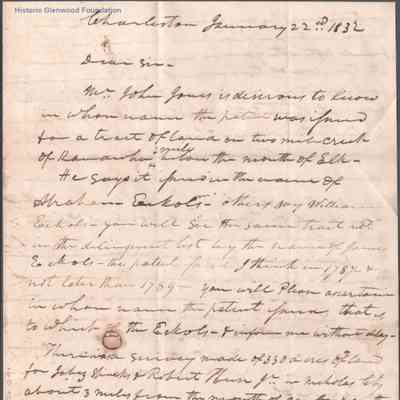 Historic Glenwood Foundation
Charleston January 22nd. 1832
Dear Sir -
Mr. John Jones is desirous to know
in whose name the patent was issued
for a tract of land on two mile creek
of Kanawha, miles below the mouth of Elk -
He says it issued in the name of
Abraham Eckols - others say William
Eckols - you will see the same tract
in the delinquent list by the name of James
Eckols - the patent I think in 1787 &
not later than 1789 - you will Please ascertain
in whose name the patent issued, that is
to which of the Eckols - & inform me without delay -
There is a survey made of 330 acres of land
for & Robert Jr. in Nicholas
about 3 miles from the mouth of